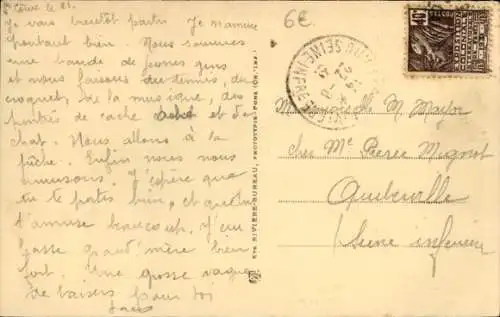 le 21.
Je vais bientôt partir. Je m'amuse
pourtant bien. Nous sommes
une bande de jeunes gens
et nous faisons du tennis, du
croquet, de la musique, des
parties de cache et de
chat. Nous allons à la
pêche. Enfin nous nous
amusons. J'espère que
tu te portes bien, et que
t'amuse beaucoup. J'em
grand'mère bien
fort. Une grosse vague
de baisers pour toi
6€
SEINE-INFRE
POSTES
40
Ets RIVIÈRE-BUREAU, PHOTOTYPIE-
Mademoiselle M. Mayor
chez Me Pierre Mignot
Quiberville
Seine inférieure